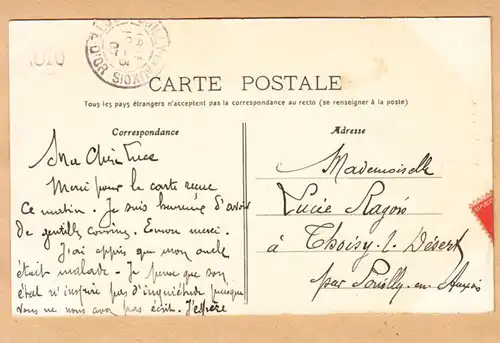 CARTE POSTALE
Tous les pays étrangers n'acceptent pas la correspondance au recto (se renseigner à la poste)
Correspondance
Ma Chère Luce
Merci pour la carte reçue
ce matin. Je suis heureuse d'avoir
de gentilles cousines. Encore merci.
J'ai appris que mon oncle
était malade. Je pense que son
état n'inspire pas d'inquiétude puisque
vous ne nous avez pas écrit. J'espère
Adresse
Mademoiselle
Lucie Ragois
à Thoisy-l-Désert
par Pouilly-en-Auxois
D'OR